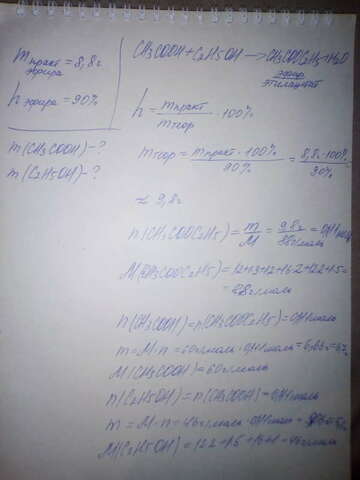 m практ = 8,8г
эфира
h эфира = 90%
m(CH3COOH) - ?
m(C2H5OH) - ?
CH3COOH + C2H5OH → CH3COOC2H5 + H2O
эфир
этилацетат
h = mпракт / mтеор · 100%
mтеор = mпракт · 100% / 90% = 8,8г · 100% / 90%
≈ 9,8г
n(CH3COOC2H5) = m/M = 9,8г / 88г/моль = 0,11моль
M(CH3COOC2H5) = 12+1·3+12+16·2+12·2+1·5 =
= 88г/моль
n(CH3COOH) = n(CH3COOC2H5) = 0,11моль
m = M · n = 60г/моль · 0,11моль = 6,6г ≈ 7г
M(CH3COOH) = 60г/моль
n(C2H5OH) = n(CH3COOH) = 0,11моль
m = M · n = 46г/моль · 0,11моль =
M(C2H5OH) = 12·2+1·5+16+1 = 46г/моль